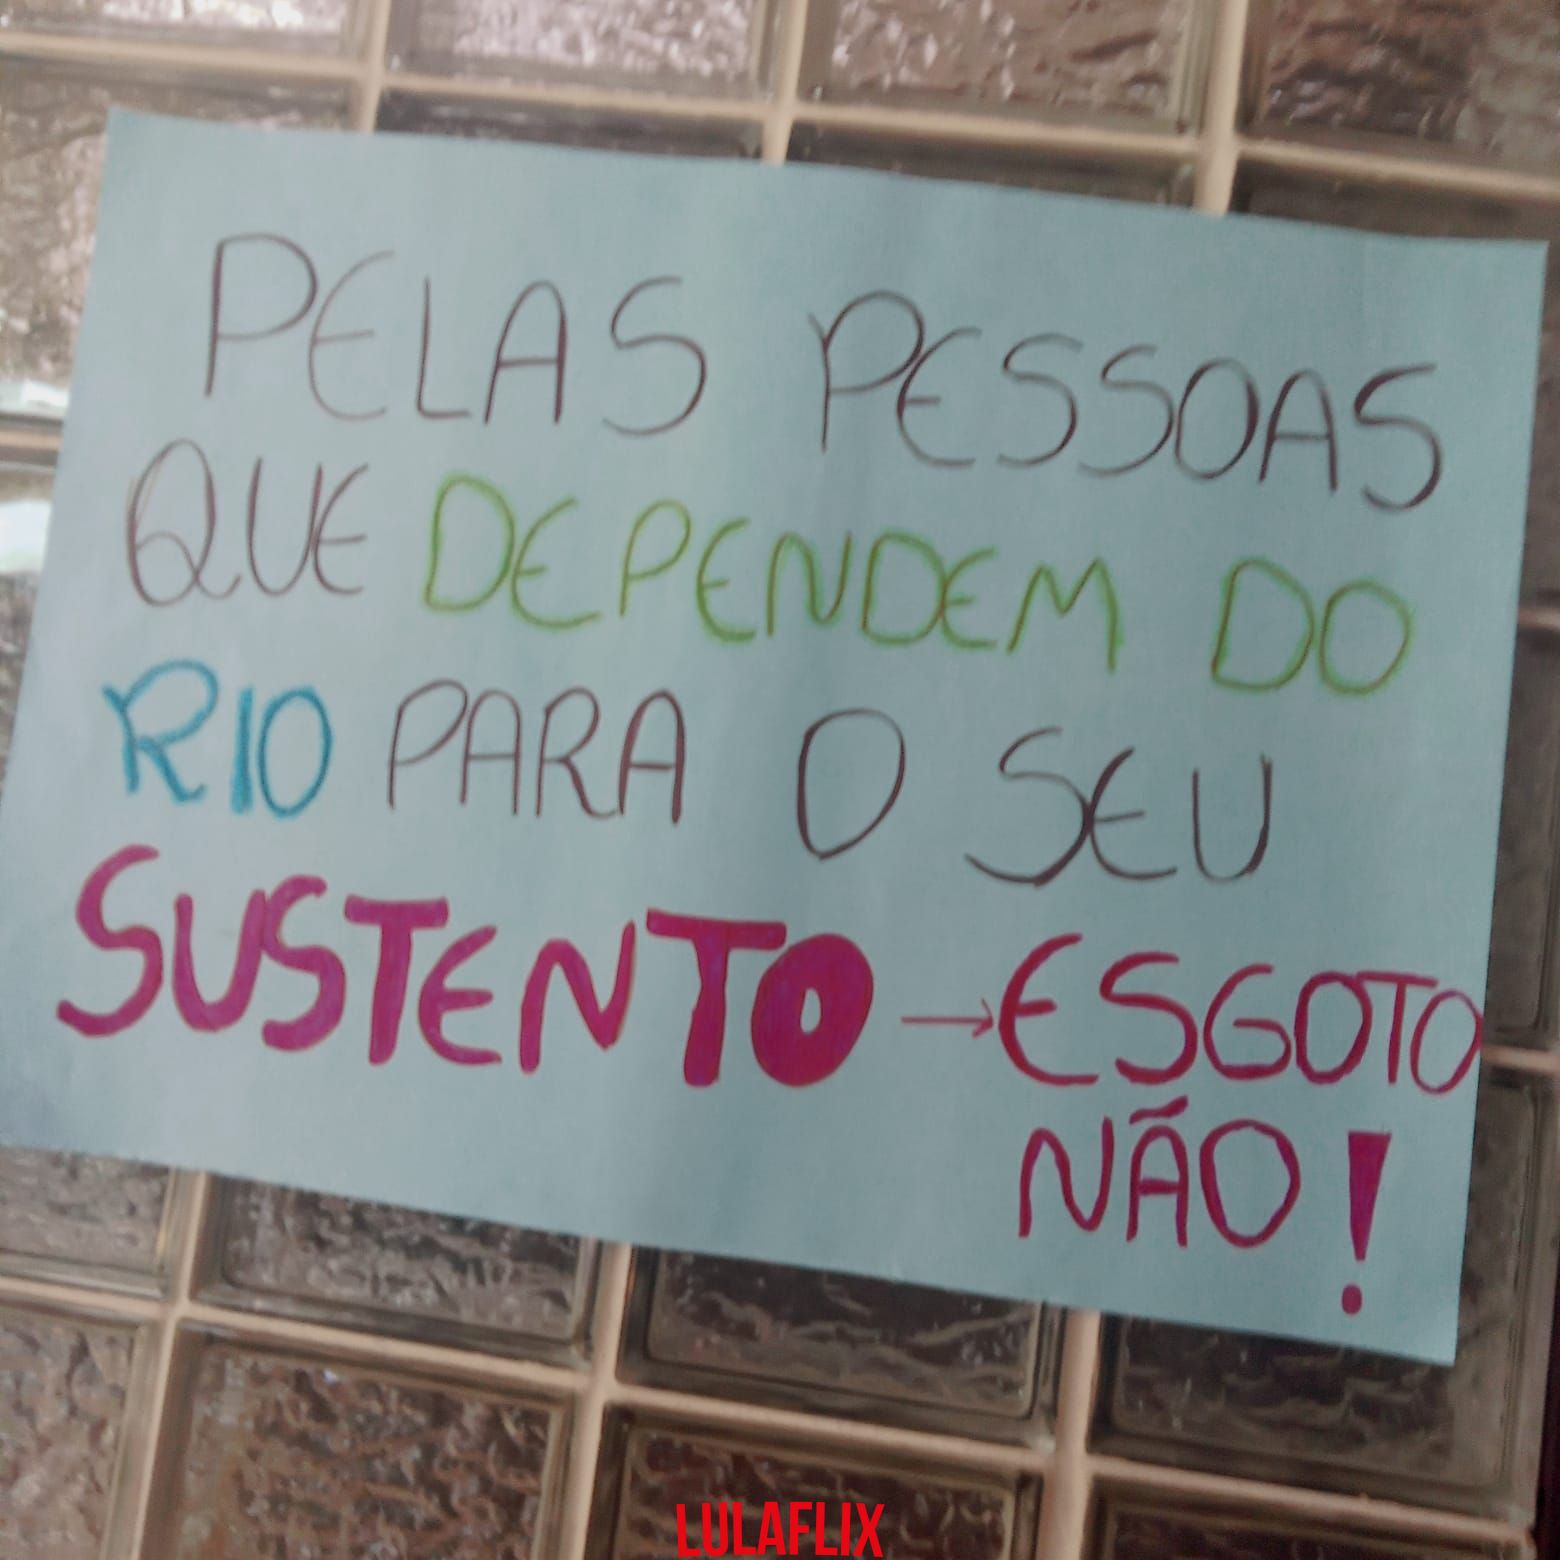 PELAS PESSOAS
QUE DEPENDEM DO
RIO PARA O SEU
SUSTENTO → ESGOTO
NÃO!
LULAFLIX